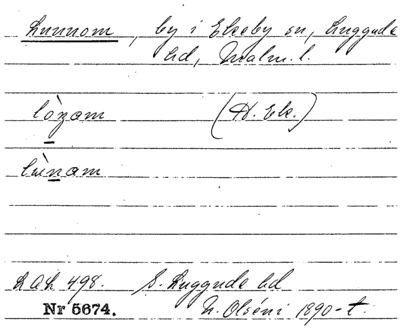 Lunnom, by i Ekeby sn, Luggude
hd, Malm. l.
lòṉam (H. Ek.)
lùṉam
LAL 498. S. Luggude hd
Nr 5674. N. Olséni 1890-t.